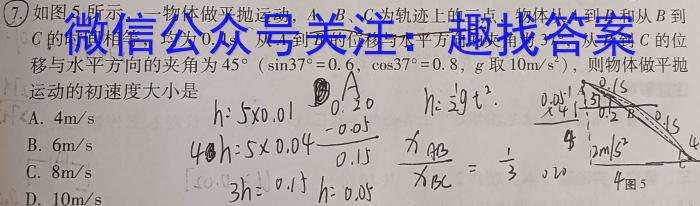 ⑦ 如图5所示,一物体做平抛运动,A、B、C为轨迹上的三点,物体从A到B和从B到
微信公众号关注:趣找答案
C的时间相等,均为0.1s,从A到B的位移与水平方向的夹角为37°,从A到C的位
移与水平方向的夹角为45°(sin37°=0.6,cos37°=0.8,g取10m/s²),则物体做平抛
运动的初速度大小是
A. 4m/s
B. 6m/s
C. 8m/s
D. 10m/s
h=5×0.01
h=5×0.04
3h=0.15 h=0.05
0.20
-0.05
0.15
h=½gt².
x_AB/x_BC = 1/3
0.1s
0.1s
A
B
C
4
图5